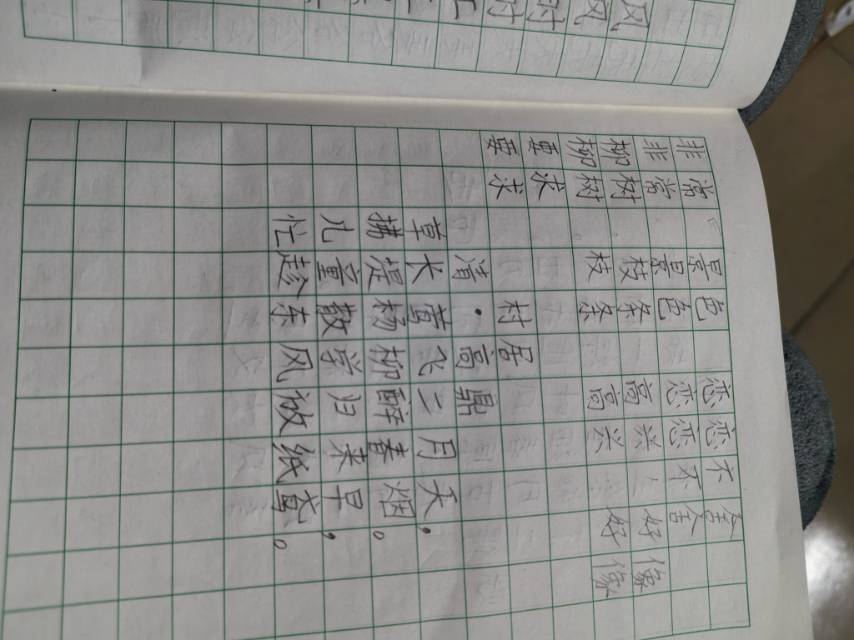 非常 景色 恋恋不舍
非常 景色 恋恋不舍
柳树 枝条 高兴 好像
柳树 枝条 高兴 好像
要求
要求 村居
清·高鼎
草长莺飞二月天,
拂堤杨柳醉春烟。
儿童散学归来早,
忙趁东风放纸鸢。